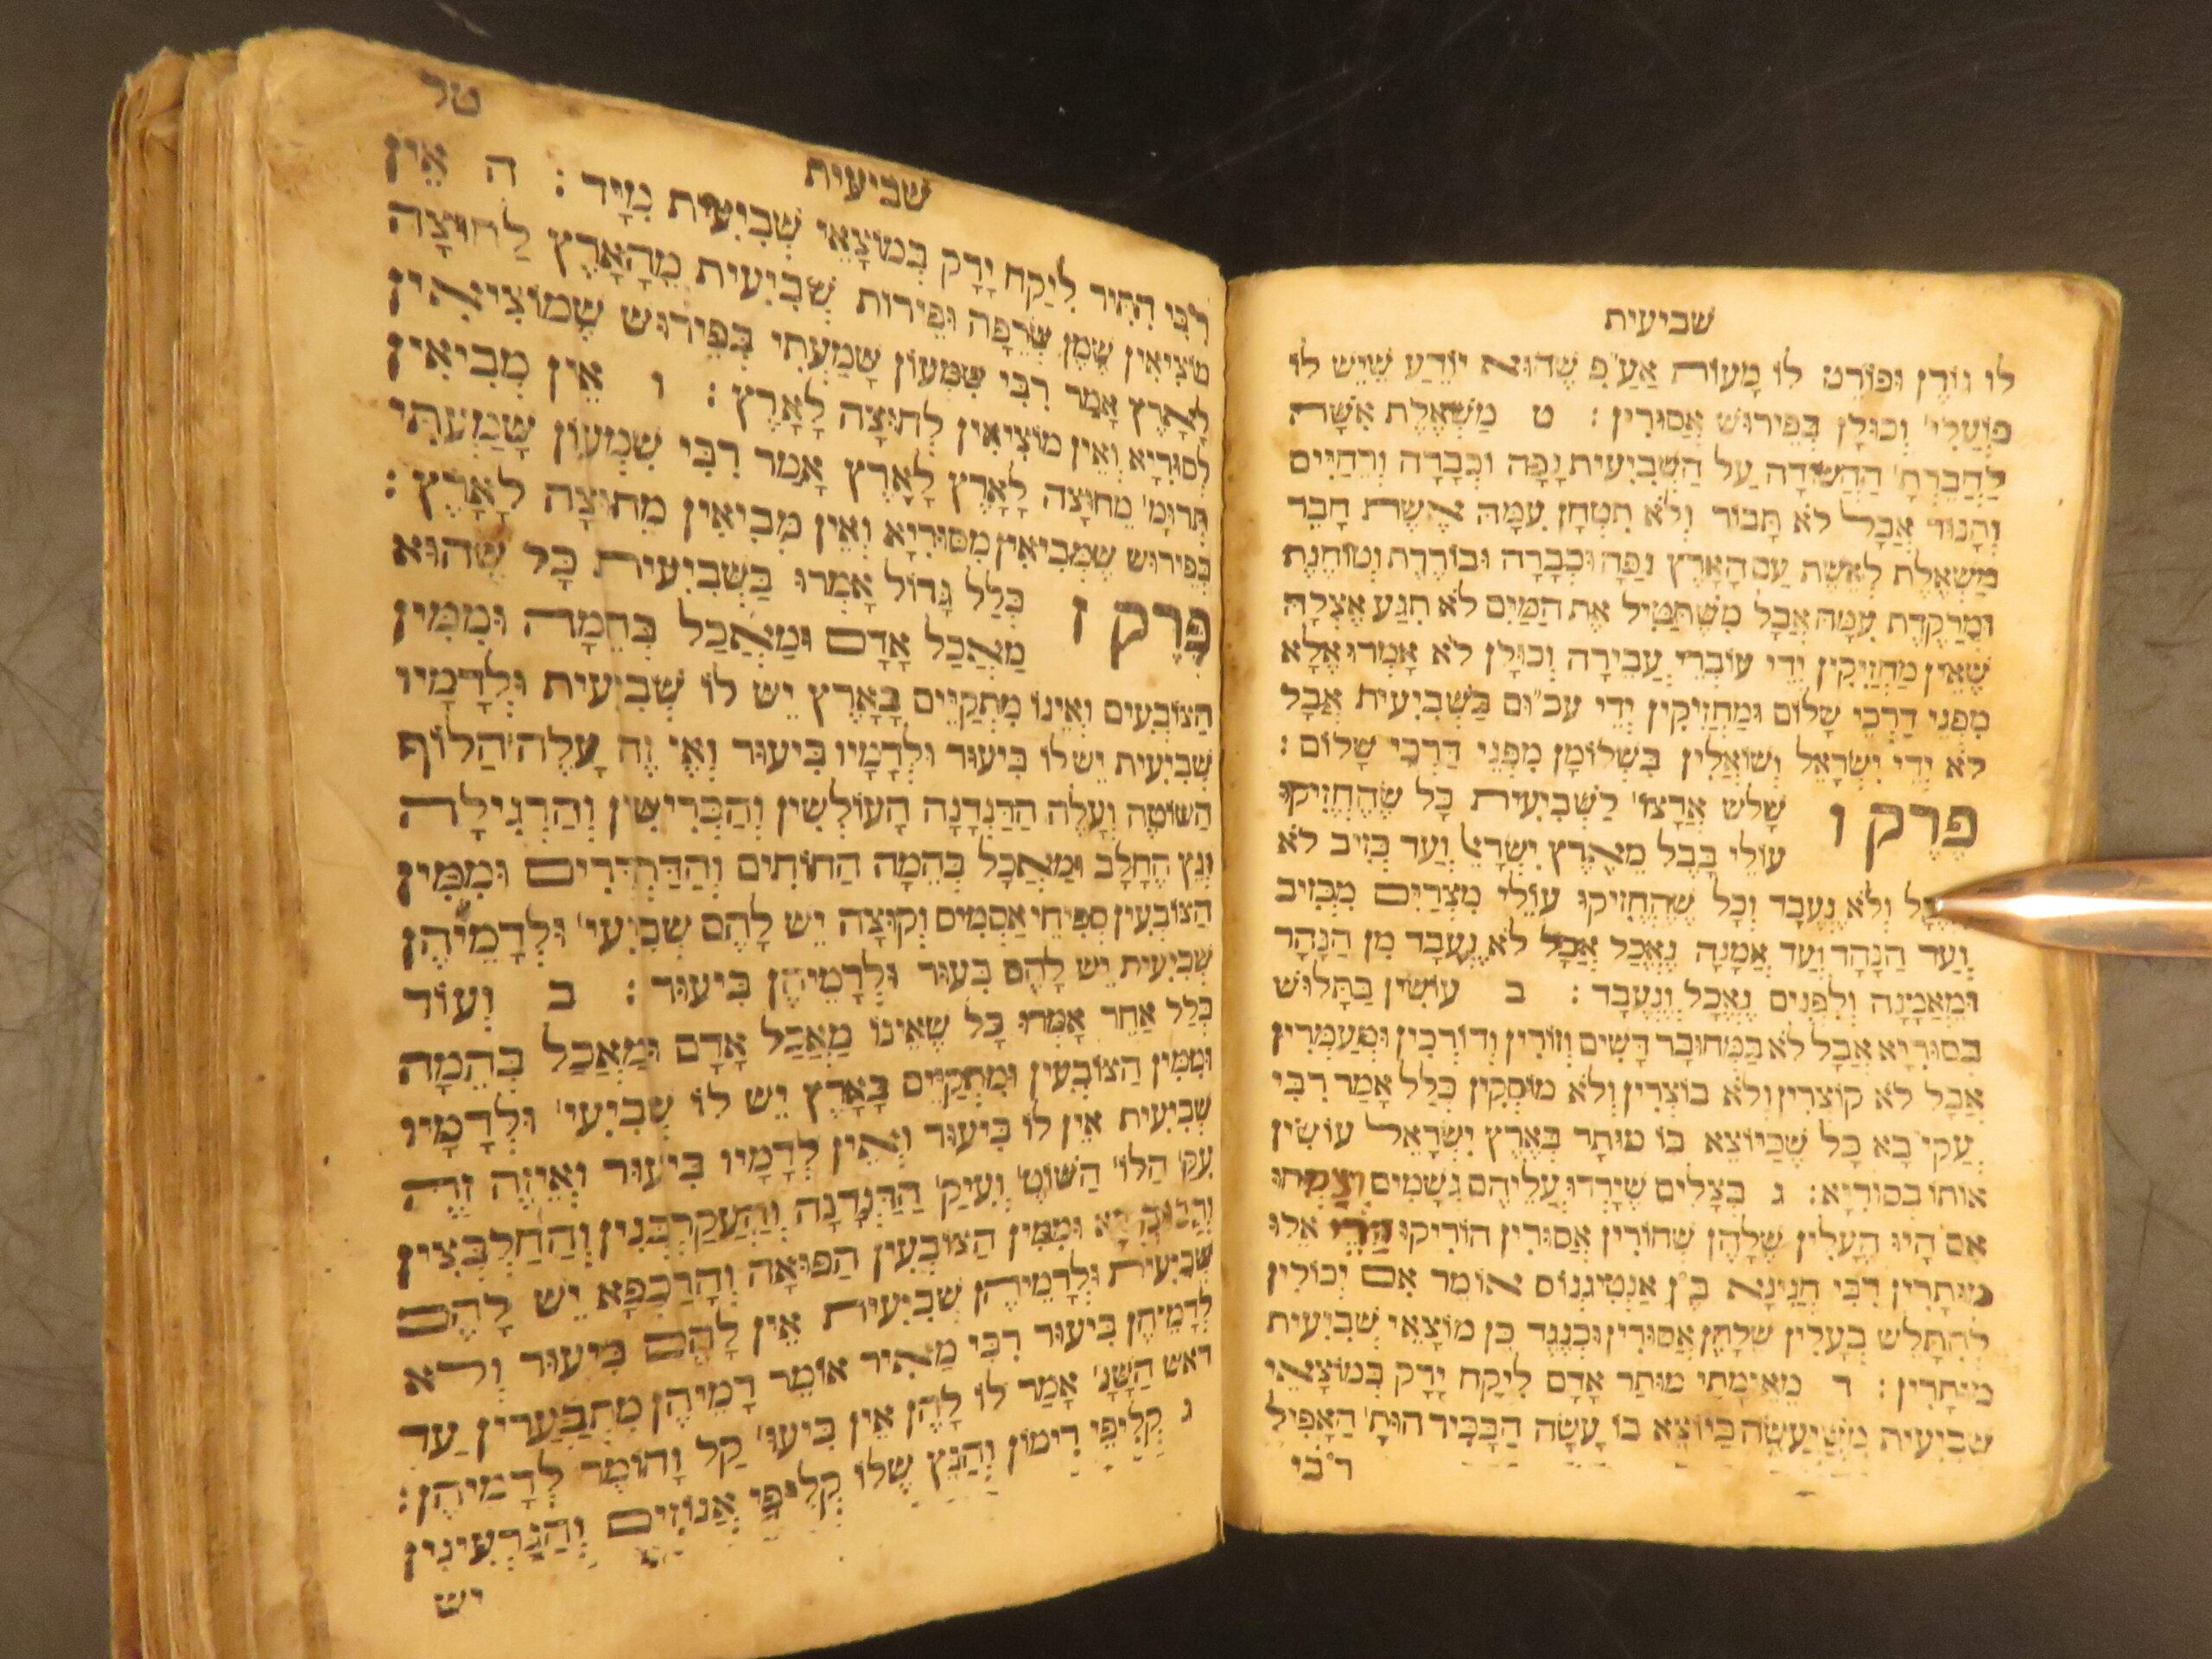 שביעית
לו גורן ופורט לו מָעות אַעַ"פ שֶהוּא יוֹדֵעַ שֶׁיֵּשׁ לוֹ
פוֹעֲלִי' וְכוּלָן בְּפֵירוּשׁ אֲסוּרִין : ט מַשְׁאֶלֶת אִשָּׁה
לַחֲבֶרְתָּ' הַחֲשׁוּדָה עַל הַשְּׁבִיעִית נָפָּה וּכְבָרָה וְרֵחַיִים
וְתַנּוּר אֲבָל לֹא תָּבוֹר וְלֹא תִטְחָן עִמָּהּ אֵשֶׁת חָבֵר
מַשְׁאֶלֶת לְאֵשֶׁת עַם הָאָרֶץ נפָּה וּכְבָרָה וּבוֹרֶרֶת וְטוֹחֶנֶת
וּמַרְקֶדֶת עִמָּהּ אֲבָל מִשֶּׁתַּטִּיל אֶת הַמַּיִם לֹא תִגַּע אֶצְלָהּ
שֶׁאֵין מַחֲזִיקִין יְדֵי עוֹבְרֵי עֲבֵירָה וְכוּלָּן לֹא אָמְרוּ אֶלָּא
מִפְּנֵי דַרְכֵי שָׁלוֹם וּמַחֲזִיקִין יְדֵי עכ"וּם בַּשְּׁבִיעִית אֲבָל
לֹא יְדֵי יִשְׂרָאֵל וְשׁוֹאֲלִין בִּשְׁלוֹמָן מִפְּנֵי דַּרְכֵי שָׁלוֹם :
פֶּרֶק ו שָׁלֹשׁ אֲרָצוֹ' לַשְּׁבִיעִית כָּל שֶׁהֶחֱזִיקוּ
עוֹלֵי בָּבֶל מֵאֶרֶץ יִשְׂרָאֵ' וְעַד כְּזִיב לֹא
וְלֹא נֶעֱבָד וְכָל שֶׁהֶחֱזִיקוּ עוֹלֵי מִצְרַיִם מִכְּזִיב
וְעַד הַנָּהָר וְעַד אֲמָנָה נֶאֱכַל אֲבָל לֹא נֶעֱבָד מִן הַנָּהָר
וּמֵאֲמָנָה וְלִפְנִים נֶאֱכָל וְנֶעֱבָד : ב עוֹשִׂין בַּתָּלוּשׁ
בְּסוּרִיָא אֲבָל לֹא בַּמְּחוּבָּר דָּשִׁים וְזוֹרִין וְדוֹרְכִין וּמְעַמְּרִין
אֲבָל לֹא קוֹצרִין וְלֹא בוֹצְרִין וְלֹא מוֹסְקִין כְּלַל אָמַר רִבִּי
עֲקִי'בָא כָּל שֶׁכַּיּוֹצֵא בוֹ מוּתָּר בְּאֶרֶץ יִשְׂרָאֵל עוֹשִׂין
אוֹתוֹ בְּסוּרְיָא : ג בְּצָלִים שֶׁיָּרְדוּ עֲלֵיהֶם גְּשָׁמִים וְצָמְחוּ
אִם הָיוּ הֶעָלִין שֶׁלָּהֶן שְׁחוֹרִין אֲסוּרִין הוֹרִיקוּ הֲרֵי אֵלּוּ
מוּתָּרִין רִבִּי חֲנִינָא בֶּ"ן אַנְטִיגְנוֹס אוֹמֵר אִם יְכוֹלִין
לְהִתָּלֵשׁ בֶּעָלִין שֶׁלָּהֶן אֲסוּרִין וּכְנֶגֶד כֵּן מוֹצָאֵי שְׁבִיעִית
מוּתָּרִין : ד מֵאֵימָתַי מוּתָּר אָדָם לִיקַּח יָרָק בְּמוֹצָאֵי
שְׁבִיעִית מִשֶּׁיַּעֲשֶׂה כַּיּוֹצֵא בוֹ עָשָׂה הַבַּכִּיר הוּתַּ' הָאָפִיל
ר"בי
שביעית טל
רִבִּי הִתִּיר לִיקַח יָרָק בְּמוֹצָאֵי שְׁבִיעִית מִיָּד : ה אֵין
מוֹצִיאִין שֶׁמֶן שְׂרֵפָה וּפֵירוֹת שְׁבִיעִית מֵהָאָרֶץ לְחוּצָה
לָאָרֶץ אָמַר רִבִּי שִׁמְעוֹן שָׁמַעְתִּי בְּפֵירוּשׁ שֶׁמּוֹצִיאִין
לְסוּרִיָא וְאֵין מוֹצִיאִין לְחוּצָה לָאָרֶץ : ו אֵין מְבִיאִין
תְּרוּמָ' מֵחוּצָה לָאָרֶץ לָאָרֶץ אָמַר רִבִּי שִׁמְעוֹן שָׁמַעְתִּי
בְּפֵירוּשׁ שֶׁמְּבִיאִין מִסּוּרִיָא וְאֵין מְבִיאִין מֵחוּצָה לָאָרֶץ :
פֶּרֶק ז כְּלַל גָּדוֹל אָמְרוּ בַּשְּׁבִיעִית כָּל שֶׁהוּא
מַאֲכַל אָדָם וּמַאֲכַל בְּהֵמָה וּמִמִּין
הַצּוֹבְעִים וְאֵינוֹ מִתְקַיֵּים בָּאָרֶץ יֵשׁ לוֹ שְׁבִיעִית וּלְדָמָיו
שְׁבִיעִית יֵשׁ לוֹ בִּיעוּר וּלְדָמָיו בִּיעוּר וְאֵי זֶה עָלֶה הַלּוֹף
הַשּׁוֹטֶה וְעָלֶה הַדַּנְדָנָה הָעוֹלְשִׁין וְהַכְּרִישִׁין וְהָרְגִילָה
וְנֵץ הֶחָלָב וּמַאֲכַל בְּהֵמָה הַחוֹחִים וְהַדַּרְדָּרִים וּמִמִּין
הַצּוֹבְעִין סְפִיחֵי אִסְטִיס וְקוֹצָה יֵשׁ לָהֶם שְׁבִיעִי' וּלְדְמֵיהֶן
שְׁבִיעִית יֵשׁ לָהֶם בִּעוּר וּלְדָמֵיהֶן בִּיעוּר : ב וְעוֹד
כְּלַל אַחֵר אָמְרוּ כָּל שֶׁאֵינוֹ מַאֲכַל אָדָם וּמַאֲכַל בְּהֵמָה
וּמִמִּין הַצּוֹבְעִין וּמִתְקַיֵּים בָּאָרֶץ יֵשׁ לוֹ שְׁבִיעִי' וּלְדָמָיו
שְׁבִיעִית אֵין לוֹ בִּיעוּר וְאֵין לְדָמָיו בִּיעוּר וְאֵיזֶה זֶה
עִקַּ' הַלּוֹ' הַשּׁוֹטֶ' וְעִיקַ' הַדַּנְדָנָה וְהָעַקְרַבָּנִין וְהַחַלְבְּצִין
וּמִמִּין הַצּוֹבְעִין הַפּוּאָה וְהָרִכְפָּא יֵשׁ לָהֶם
שְׁבִיעִית וּלְדְמֵיהֶן שְׁבִיעִית אֵין לָהֶם בִּיעוּר וְלֹא
לְדְמֵיהֶן בִּיעוּר רִבִּי מֵאִיר אוֹמֵר דְּמֵיהֶן מִתְבַּעֲרִין עַד
רֹאשׁ הַשָּׁנָ' אָמַר לוֹ לָהֶן אֵין בִּיעוּ' קַל וָחוֹמֶר לְדְמֵיהֶן :
ג קְלִיפֵּי רִימוֹן וְהַנֵּץ שֶׁלּוֹ קְלִיפֵּי אֱגוֹזִים וְהַגַּרְעִינִין
יש